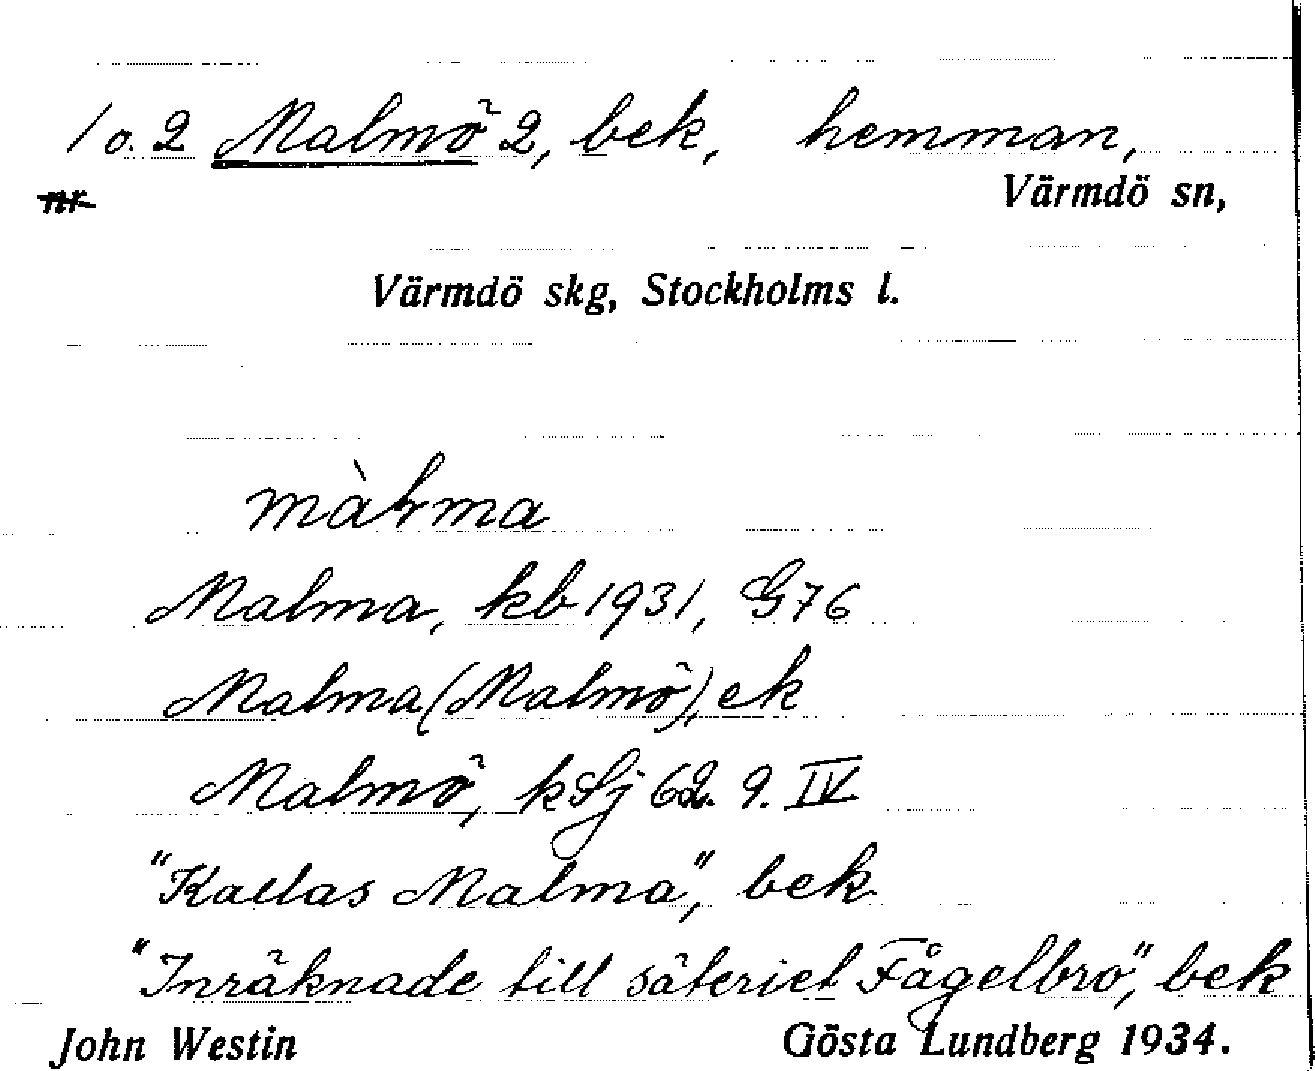 1 o. 2 Malmö 2, bek, hemman,
nr
Värmdö sn,
Värmdö skg, Stockholms l.
màƚma
Malma, kb 1931, G76
Malma (Malmö), ek
Malmö, kSj 62. 9. IV
"Kallas Malma", bek
"Inräknade till säteriet Fågelbro", bek
John Westin Gösta Lundberg 1934.